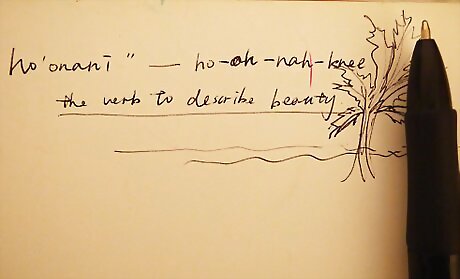 ho'onanī" — ho-oh-nah-knee
the verb to describe beauty.